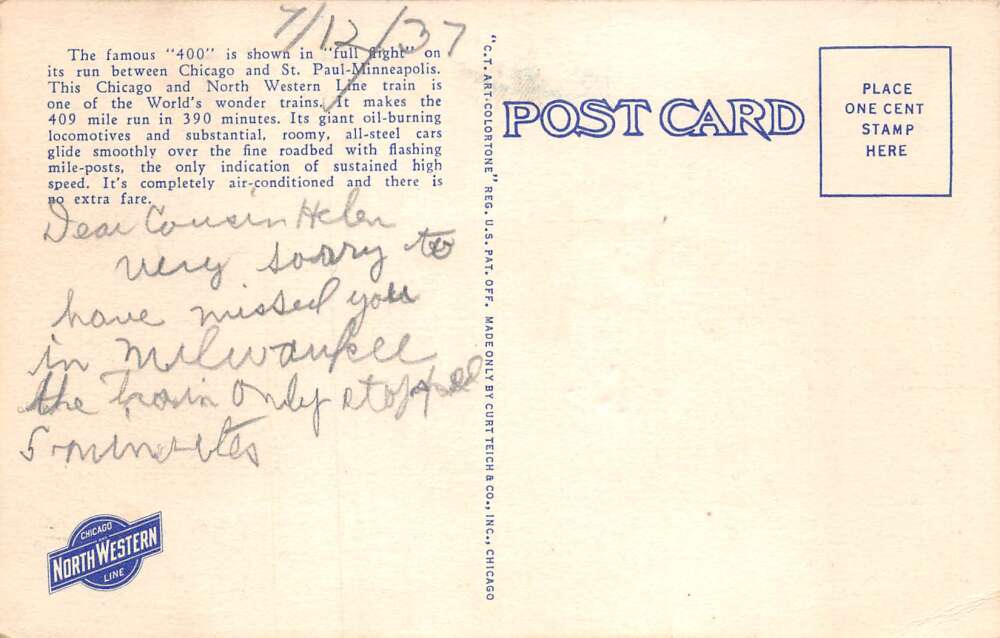 7/12/37
The famous "400" is shown in "full flight" on
its run between Chicago and St. Paul-Minneapolis.
This Chicago and North Western Line train is
one of the World's wonder trains. It makes the
409 mile run in 390 minutes. Its giant oil-burning
locomotives and substantial, roomy, all-steel cars
glide smoothly over the fine roadbed with flashing
mile-posts, the only indication of sustained high
speed. It's completely air-conditioned and there is
no extra fare.
Dear Cousin Helen
very sorry to
have missed you
in Milwaukee
the train only stopped
5 minutes
CHICAGO
AND
NORTH WESTERN
LINE
"C.T. ART-COLORTONE" REG. U.S. PAT. OFF. MADE ONLY BY CURT TEICH & CO., INC., CHICAGO
POST CARD
PLACE
ONE CENT
STAMP
HERE